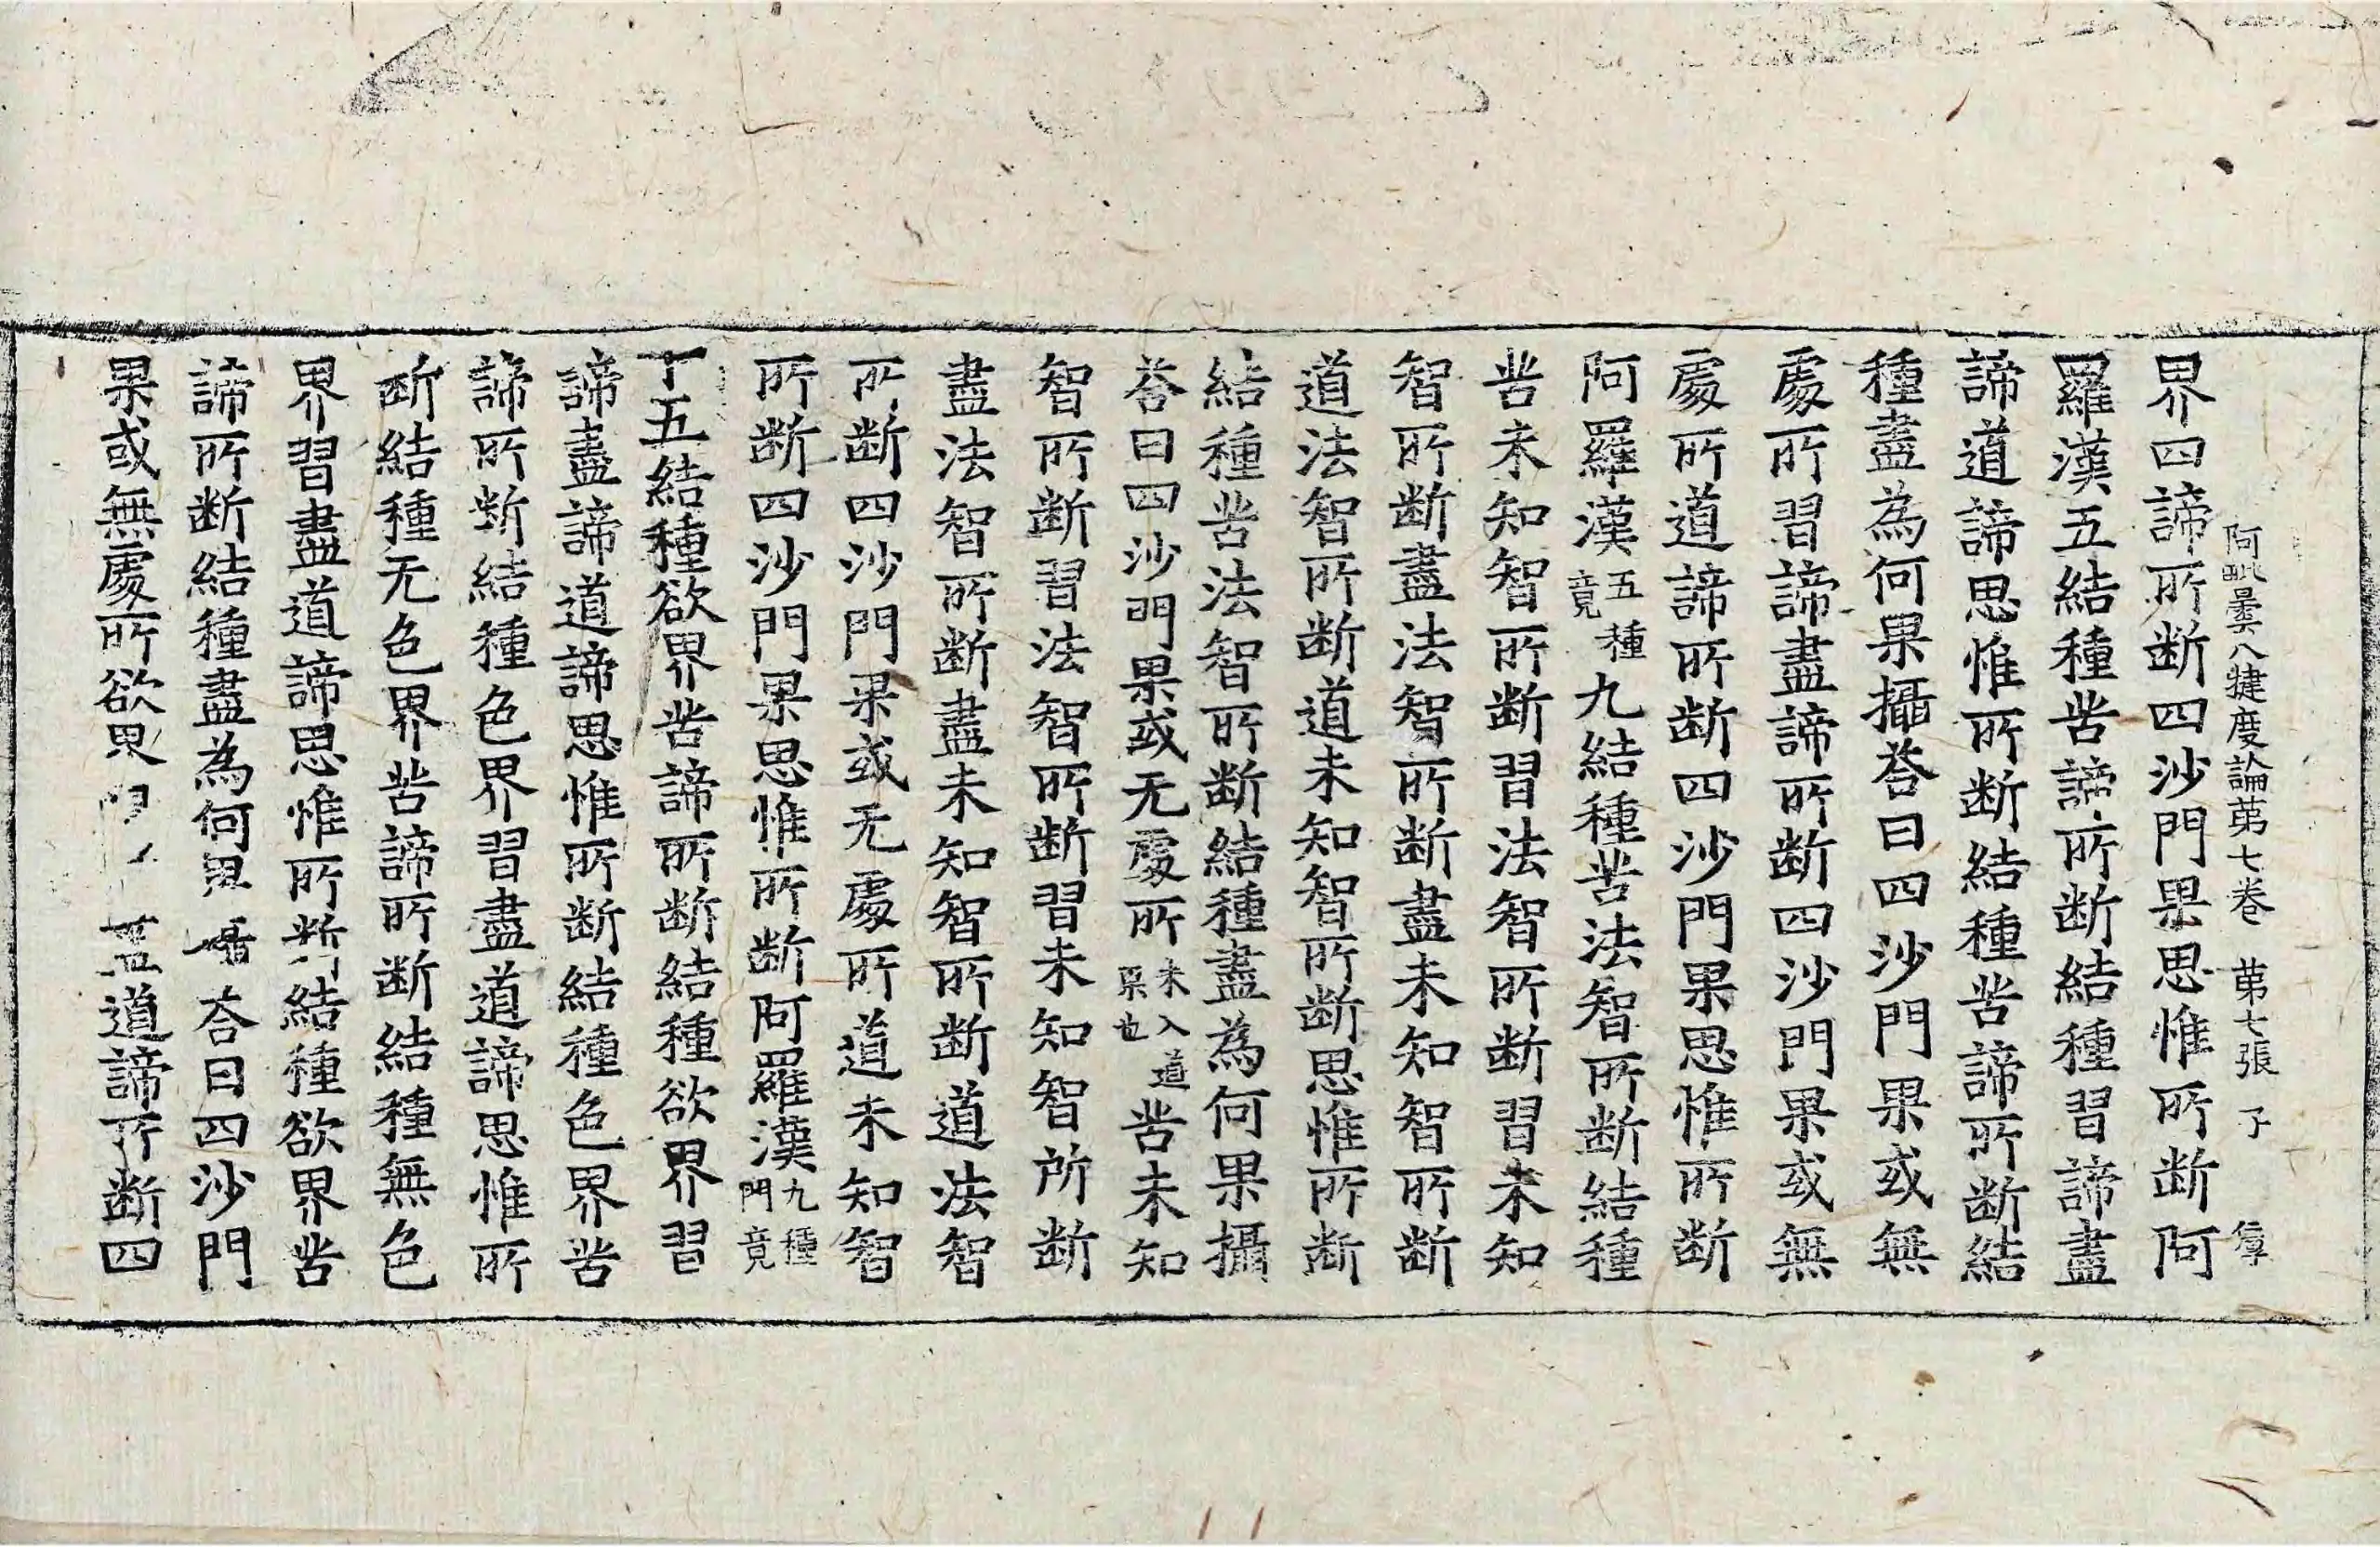 阿毗曇八犍度論苐七卷 苐七張 子 㝆
界四諦所断四沙門果思惟所断阿
羅漢五結種苦諦所断結種習諦盡
諦道諦思惟所断結種苦諦所断結
種盡為何果攝荅曰四沙門果或無
處所習諦盡諦所断四沙門果或無
處所道諦所断四沙門果思惟所断
阿羅漢五種竟九結種苦法智所断結種
苦未知智所断習法智所断習未知
智所断盡法智所断盡未知智所断
道法智所断道未知智所断思惟所断
結種苦法智所断結種盡為何果攝
荅曰四沙門果或无處所未入道果也苦未知
智所断習法智所断習未知智所断
盡法智所断盡未知智所断道法智
所断四沙門果或无處所道未知智
所断四沙門果思惟所断阿羅漢九種門竟
十五結種欲界苦諦所断結種欲界習
諦盡諦道諦思惟所断結種色界苦
諦所断結種色界習盡道諦思惟所
断結種无色界苦諦所断結種無色
界習盡道諦思惟所断結種欲界苦
諦所断結種盡為何果攝荅曰四沙門
果或無處所欲界 盡道諦所断四